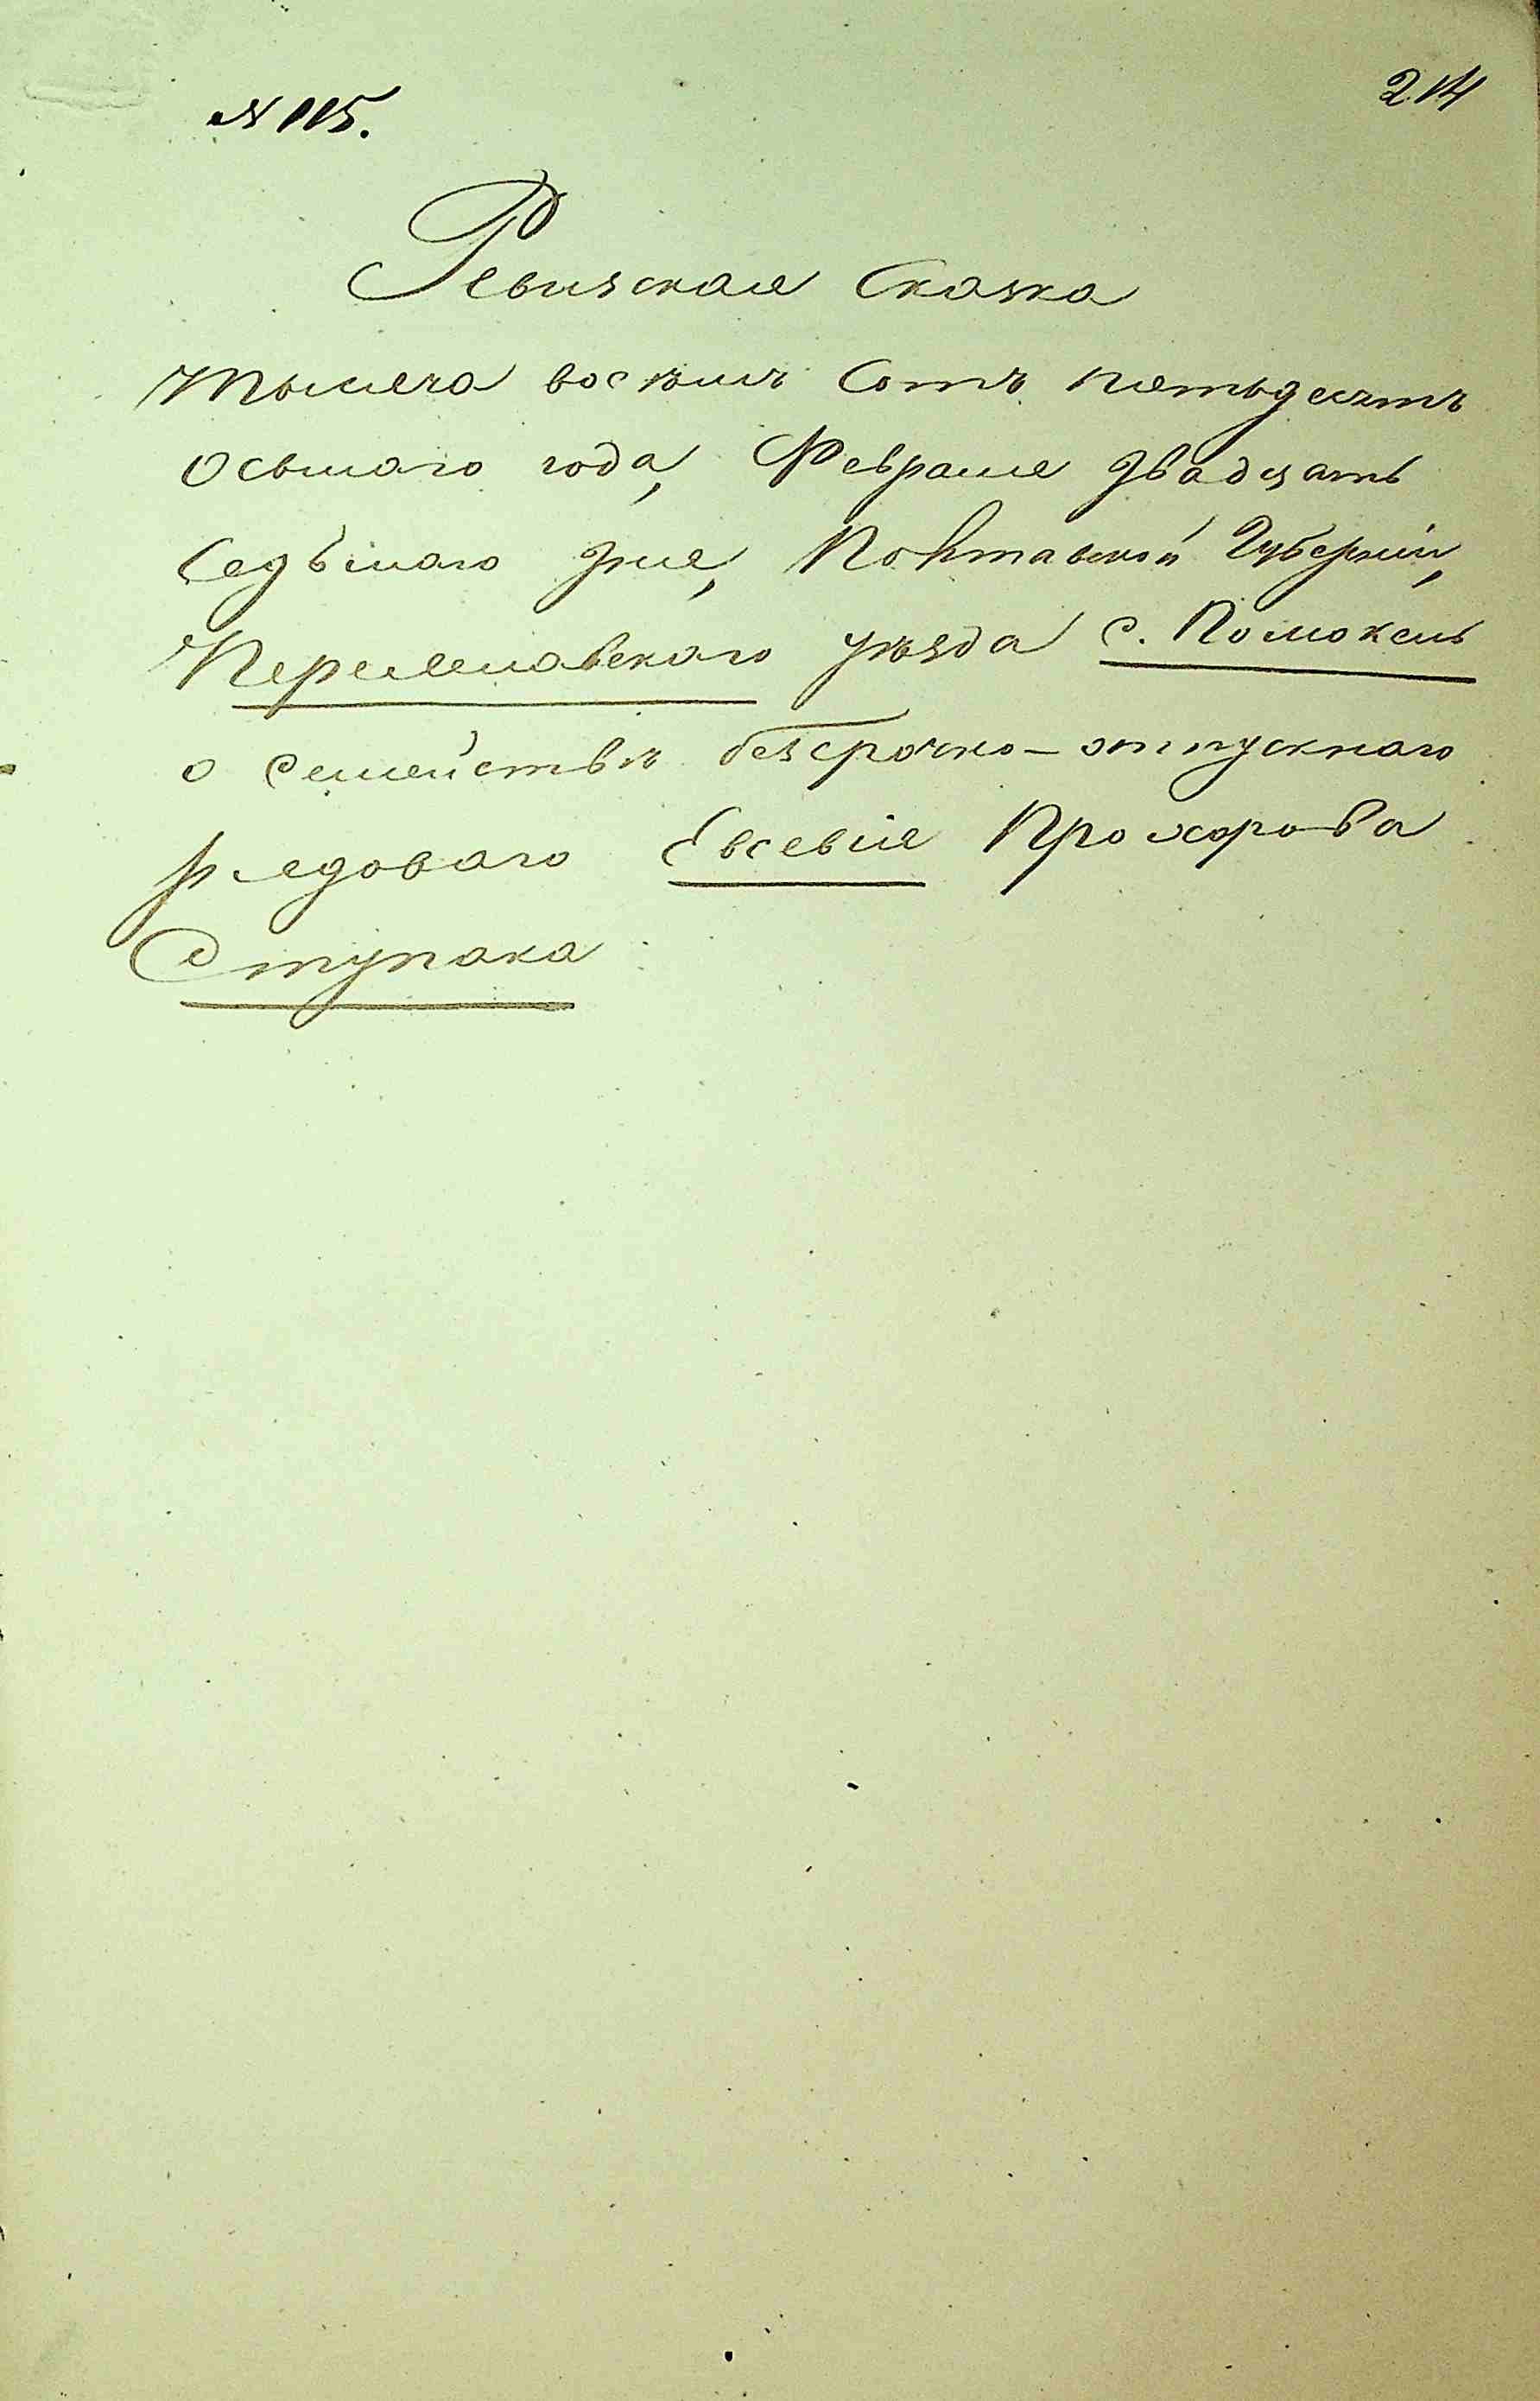 № 115.
214
Ревизская Сказка
Тысяча восемь Сотъ пятьдесятъ
осьмаго года, Февраля двадцать
Седьмаго дня, Полтавской Губерніи,
Переяславскаго уѣзда с. Помоклъ
о семействѣ безсрочно-отпускнаго
рядоваго Евсевія Прохорова
Ступака